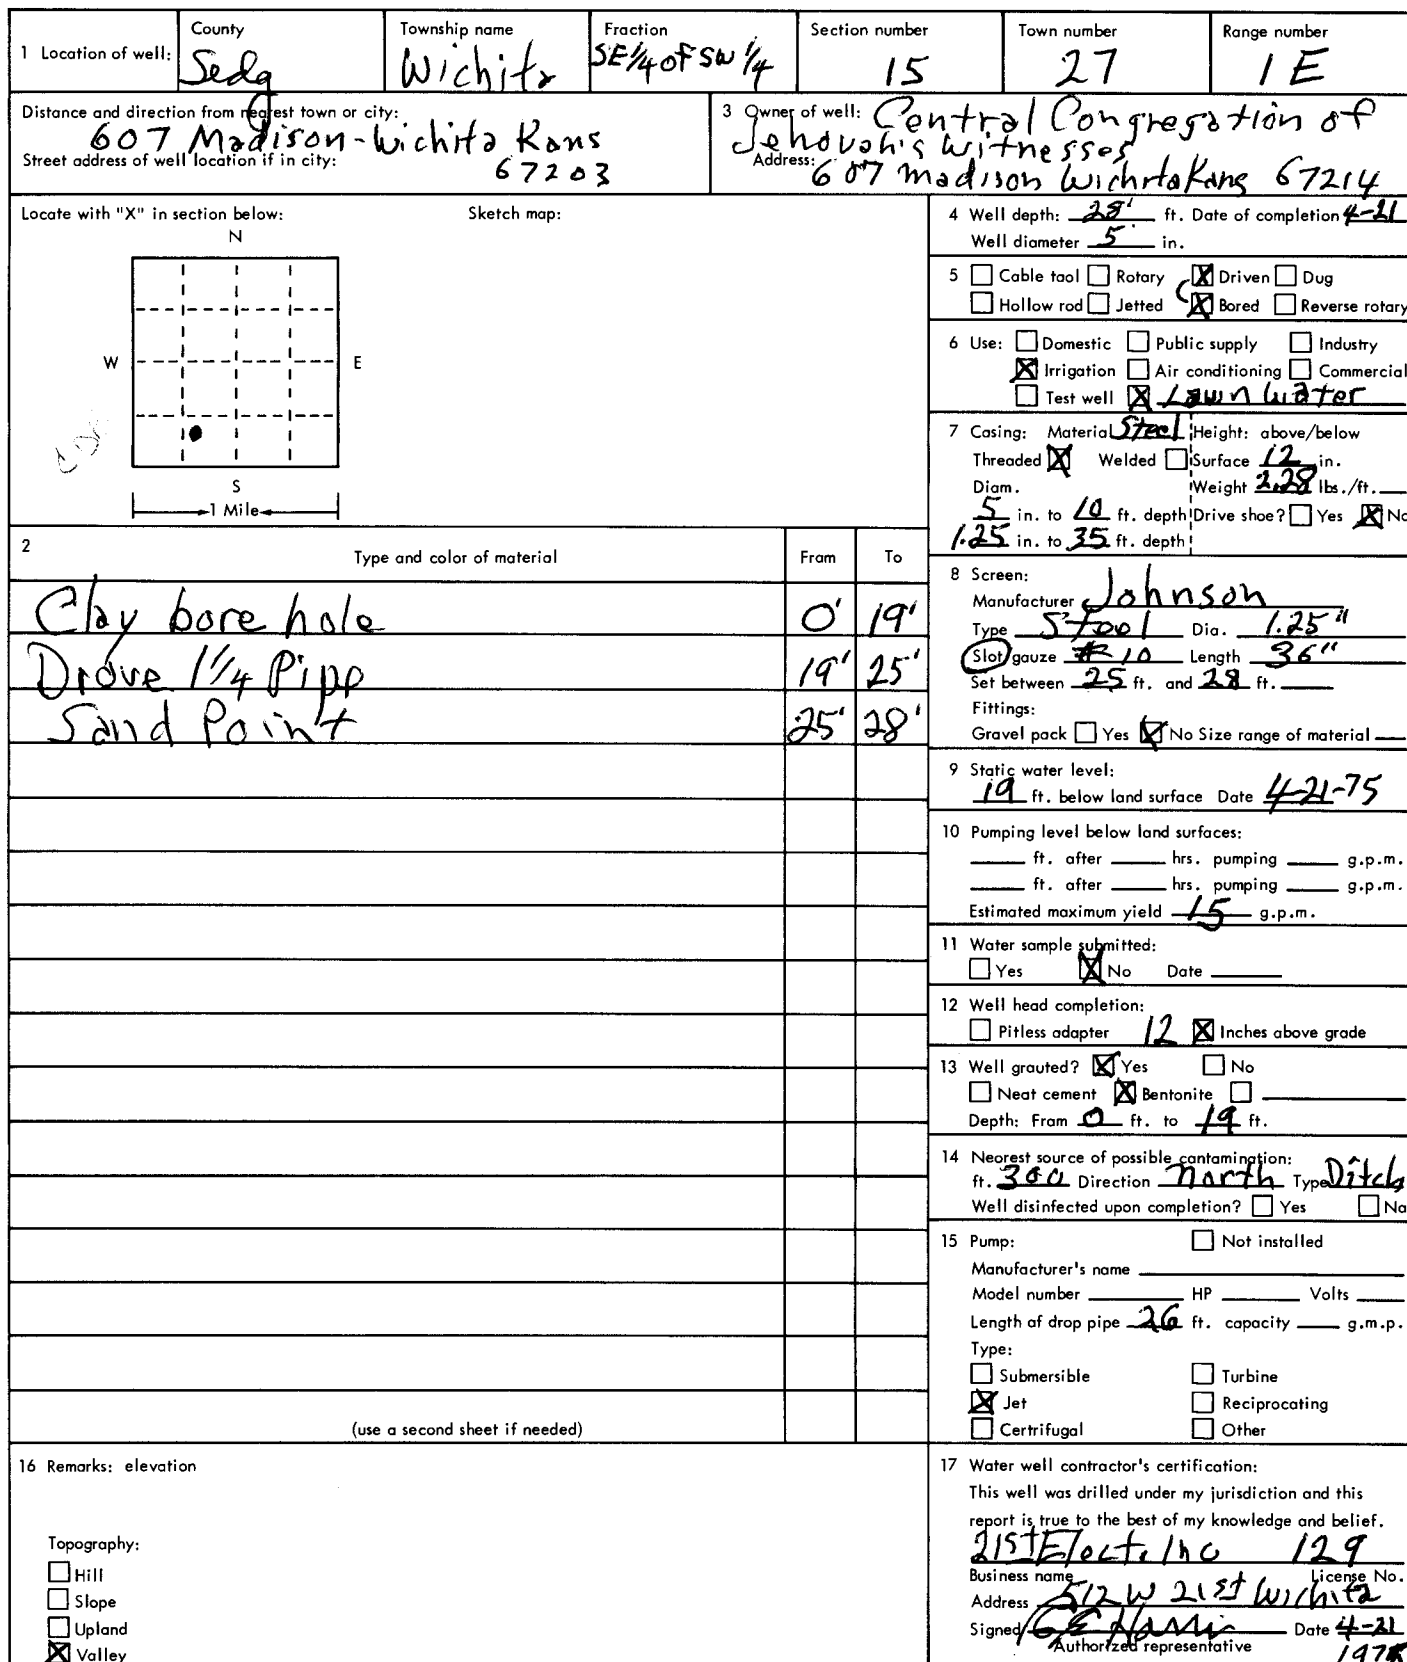 1 Location of well: County Township name Fraction Section number Town number Range number
Sedg Wichita SE1/4 OF SW 1/4 15 27 1 E
Distance and direction from nearest town or city:
607 Madison-Wichita Kans
Street address of well location if in city: 67203
3 Owner of well: Central Congregation of
Jehovah's Witnesses
Address: 607 Madison Wichita Kans 67214
Locate with "X" in section below: Sketch map:
N
W E
S
1 Mile
2 Type and color of material From To
Clay bore hole 0' 19'
Drove 1 1/4 Pipe 19' 25'
Sand Point 25' 28'
(use a second sheet if needed)
4 Well depth: 28' ft. Date of completion 4-21
Well diameter 5 in.
5 Cable tool Rotary X Driven Dug
Hollow rod Jetted X Bored Reverse rotary
6 Use: Domestic Public supply Industry
X Irrigation Air conditioning Commercial
Test well X Lawn Water
7 Casing: Material Steel Height: above/below
Threaded X Welded Surface 12 in.
Diam. Weight 2.28 lbs./ft.
5 in. to 10 ft. depth Drive shoe? Yes X No
1.25 in. to 35 ft. depth
8 Screen:
Manufacturer Johnson
Type Steel Dia. 1.25"
Slot/gauze # 10 Length 36"
Set between 25 ft. and 28 ft.
Fittings:
Gravel pack Yes X No Size range of material
9 Static water level:
19 ft. below land surface Date 4-21-75
10 Pumping level below land surfaces:
ft. after hrs. pumping g.p.m.
ft. after hrs. pumping g.p.m.
Estimated maximum yield 15 g.p.m.
11 Water sample submitted:
Yes X No Date
12 Well head completion:
Pitless adapter 12 X Inches above grade
13 Well grouted? X Yes No
Neat cement X Bentonite
Depth: From 0 ft. to 19 ft.
14 Nearest source of possible contamination:
ft. 300 Direction North Type Ditch
Well disinfected upon completion? Yes No
15 Pump: Not installed
Manufacturer's name
Model number HP Volts
Length of drop pipe 26 ft. capacity g.m.p.
Type:
Submersible Turbine
X Jet Reciprocating
Certrifugal Other
16 Remarks: elevation
Topography:
Hill
Slope
Upland
X Valley
17 Water well contractor's certification:
This well was drilled under my jurisdiction and this
report is true to the best of my knowledge and belief.
21st Elect. Inc 129
Business name License No.
Address 512 W 21st Wichita
Signed Date 4-21
Authorized representative